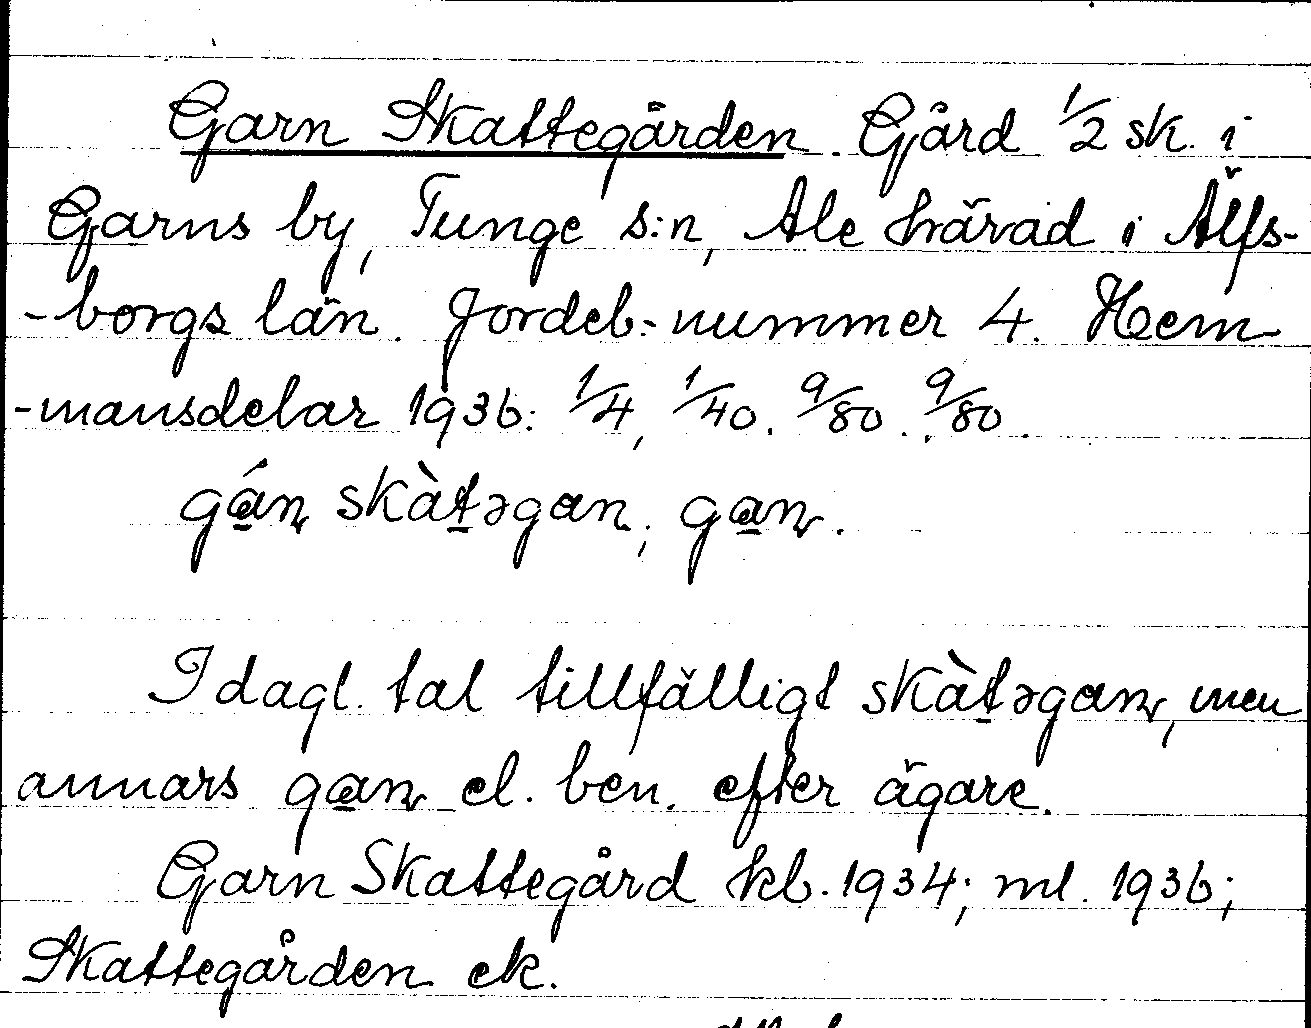 Garn Skattegården. Gård 1/2 sk. i
Garns by, Tunge s:n, Ale härad i Älfs-
-borgs län. Jordeb.-nummer 4. Hem-
-mansdelar 1936: 1/4, 1/40. 9/80. 9/80.
gán skàtəgan, gan.
I dagl. tal tillfälligt skàtəgan, men
annars gan el. ben. efter ägare.
Garn Skattegård kb. 1934; ml. 1936;
Skattegården ek.